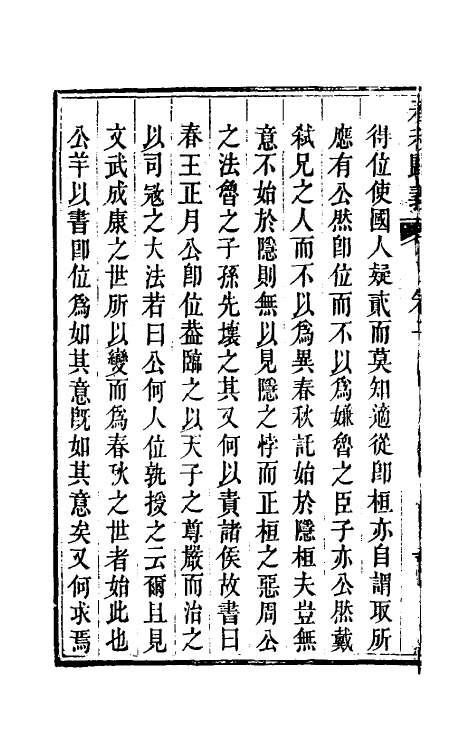 得位使國人疑貳而莫知適從卽桓亦自謂取所
應有公然卽位而不以爲嫌魯之臣子亦公然戴
弒兄之人而不以爲異春秋託始於隱桓夫豈無
意不始於隱則無以見隱之悖而正桓之惡周公
之法魯之子孫先壞之其又何以責諸侯故書曰
春王正月公卽位葢臨之以天子之尊嚴而治之
以司寇之大法若曰公何人位孰授之云爾且見
文武成康之世所以變而爲春秋之世者始此也
公羊以書卽位爲如其意旣如其意矣又何求焉